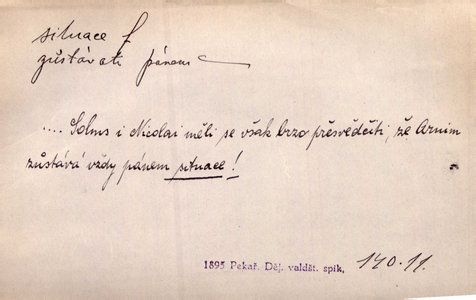 situace f
zůstávati pánem
.... Solms i Nicolai měli se však brzo přesvědčiti, že Arnim
zůstává vždy pánem situace!
1895 Pekař. Děj. valdšt. spik. 140.11.